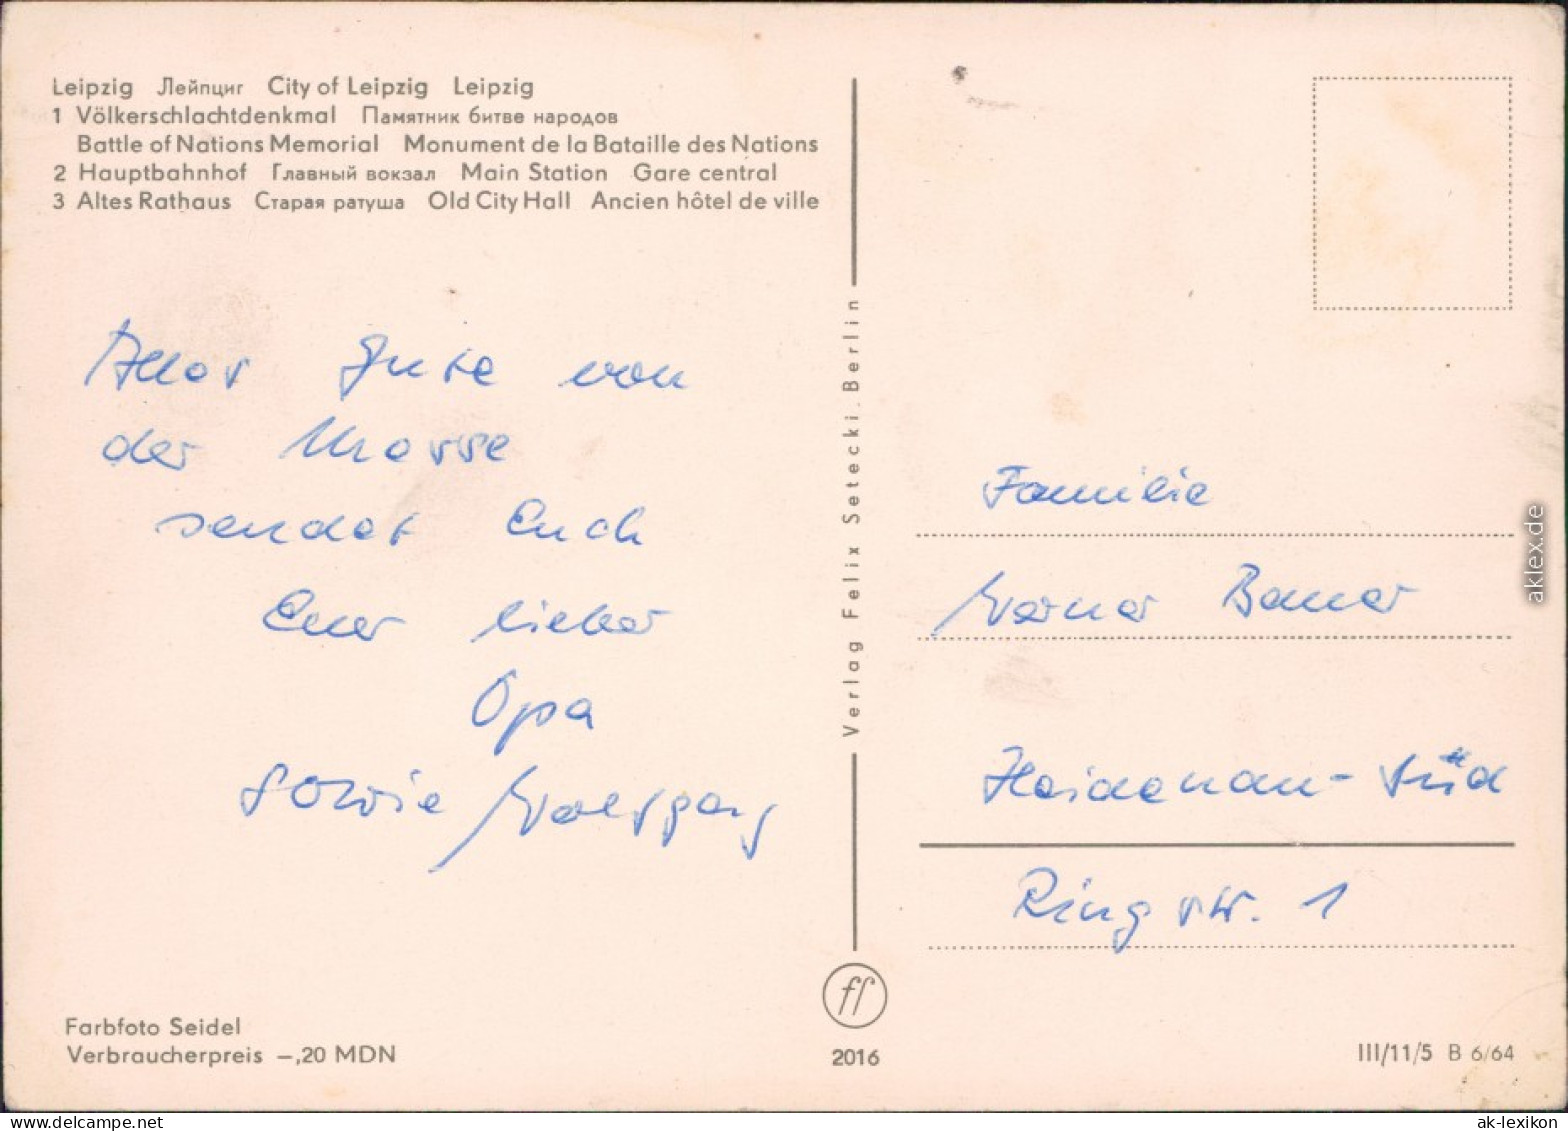 Leipzig Лейпциг City of Leipzig Leipzig
1 Völkerschlachtdenkmal Памятник битве народов
Battle of Nations Memorial Monument de la Bataille des Nations
2 Hauptbahnhof Главный вокзал Main Station Gare central
3 Altes Rathaus Старая ратуша Old City Hall Ancien hôtel de ville
Alles Gute von
der Messe
sendet Euch
Euer lieber
Opa
sowie Wolfgang
Farbfoto Seidel
Verbraucherpreis –,20 MDN
Verlag Felix Setecki, Berlin
ff
2016
Familie
Werner Bauer
Heidenau-Süd
Ringstr. 1
III/11/5 B 6/64
aklex.de
ak-lexikon